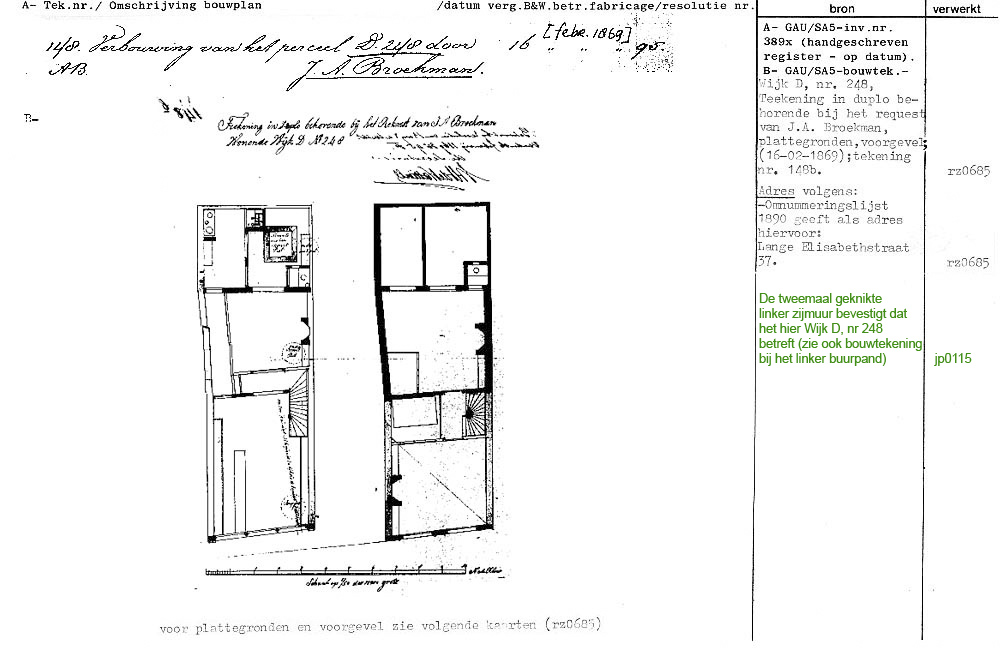 A- Tek.nr./ Omschrijving bouwplan /datum verg.B&W.betr.fabricage/resolutie nr.
148. Verbouwing van het perceel D. 248 door 16 [febr. 1869] 95.
AB. J. A. Broekman.
B-
148 b
Teekening in duplo behorende bij het Rekwest van J A Broekman
Wonende Wijk D No 248
Schaal op 1/50 der ware groote
voor plattegronden en voorgevel zie volgende kaarten (rz0685)
bron
A- GAU/SA5-inv.nr.
389x (handgeschreven
register - op datum).
B- GAU/SA5-bouwtek.-
Wijk D, nr. 248,
Teekening in duplo be-
horende bij het request
van J.A. Broekman,
plattegronden,voorgevel;
(16-02-1869);tekening
nr. 148b.
Adres volgens:
-Omnummeringslijst
1890 geeft als adres
hiervoor:
Lange Elisabethstraat
37.
De tweemaal geknikte
linker zijmuur bevestigt dat
het hier Wijk D, nr 248
betreft (zie ook bouwtekening
bij het linker buurpand)
verwerkt
rz0685
rz0685
jp0115